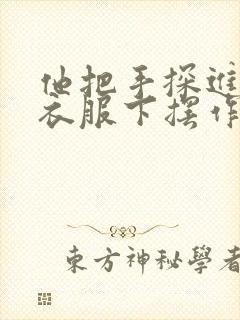 他把手探進
衣服下摆作
東方神秘學者